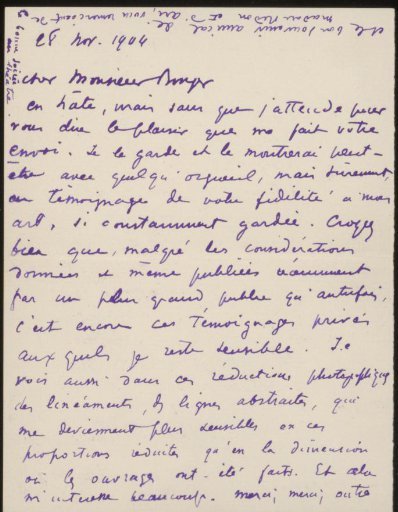 28 Nov. 1904
Cher Monsieur Bonger
en hâte, mais sans que j'attende pour
vous dire le plaisir que me fait votre
envoi. Je le garde et le montrerai peut-
être avec quelqu'orgueil, mais sûrement,
en témoignage de votre fidélité à mon
art, si constamment gardée. Croyez
bien que, malgré les considérations
données et même publiées récemment
par un plus grand public qu'autrefois,
c'est encore ces témoignages privés
auxquels je reste sensible. Je
vois aussi dans ces réductions photographiques
des linéaments, des lignes abstraites, qui
me deviennent plus sensibles en ces
proportions réduites qu'en la dimension
où les ouvrages ont été faits. Et cela
m'intéresse beaucoup. Merci, merci, outre
et le bon souvenir amical de
madame Redon et d'Ari, vous remerciant de
la bonne soirée
au théâtre.